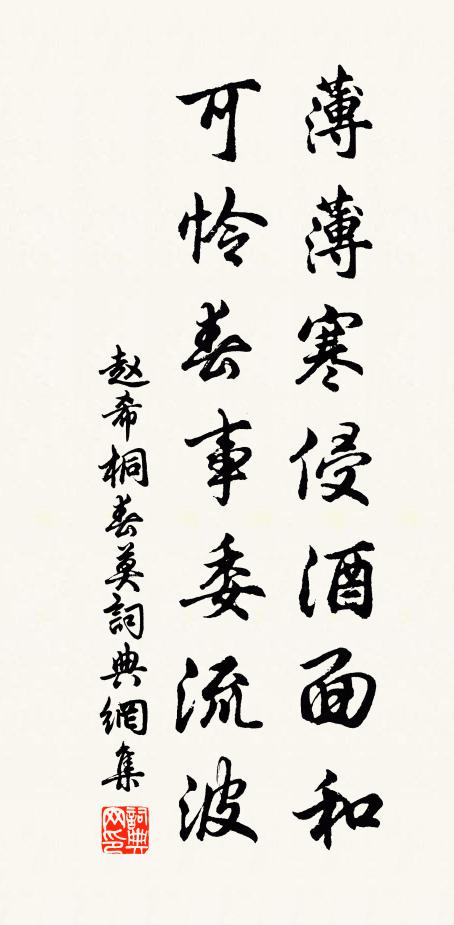 薄薄寒侵酒面和
可怜春事委流波
赵希桐春莫詞典網集
詞典网印